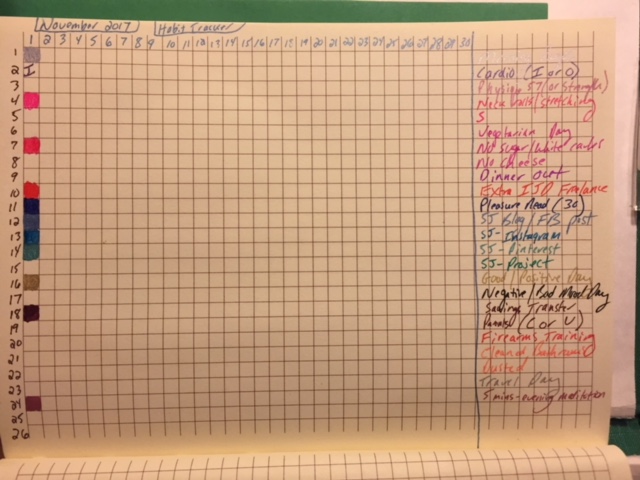 November 2017 Habit Tracker
1 2 3 4 5 6 7 8 9 10 11 12 13 14 15 16 17 18 19 20 21 22 23 24 25 26 27 28 29 30
1
2 I Cardio (I or O)
3 (or strength)
4 Neck rolls/stretching
5 S
6 Vegetarian Day
7 No sugar/white carbs
8 No cheese
9 Dinner out
10 Extra Freelance
11 Pleasure Read (30)
12 SJ Blog/FB post
13 SJ-Instagram
14 SJ-Pinterest
15 SJ-Project
16 Good/Positive Day
17 Negative/Bad Mood Day
18 Savings Transfer
19 (C or U)
20 Firearms Training
21 Cleaned Bathroom
22 Dusted
23 Travel Day
24 5 mins-evening meditation
25
26